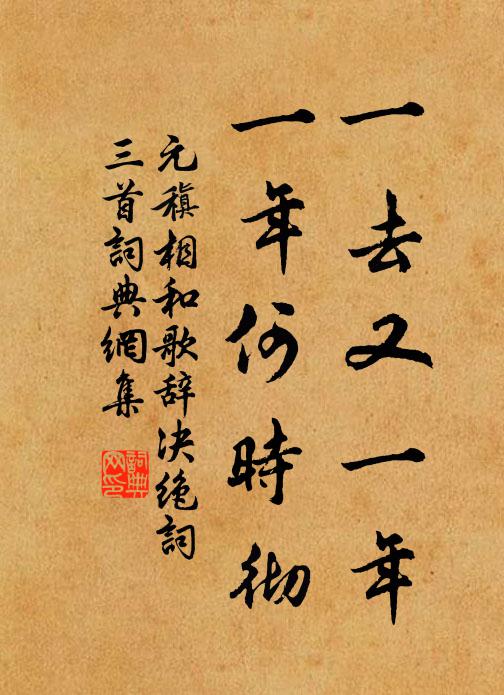 一去又一年
一年何時彻
元稹相和歌辞决绝詞
三首詞典網集
詞典网印